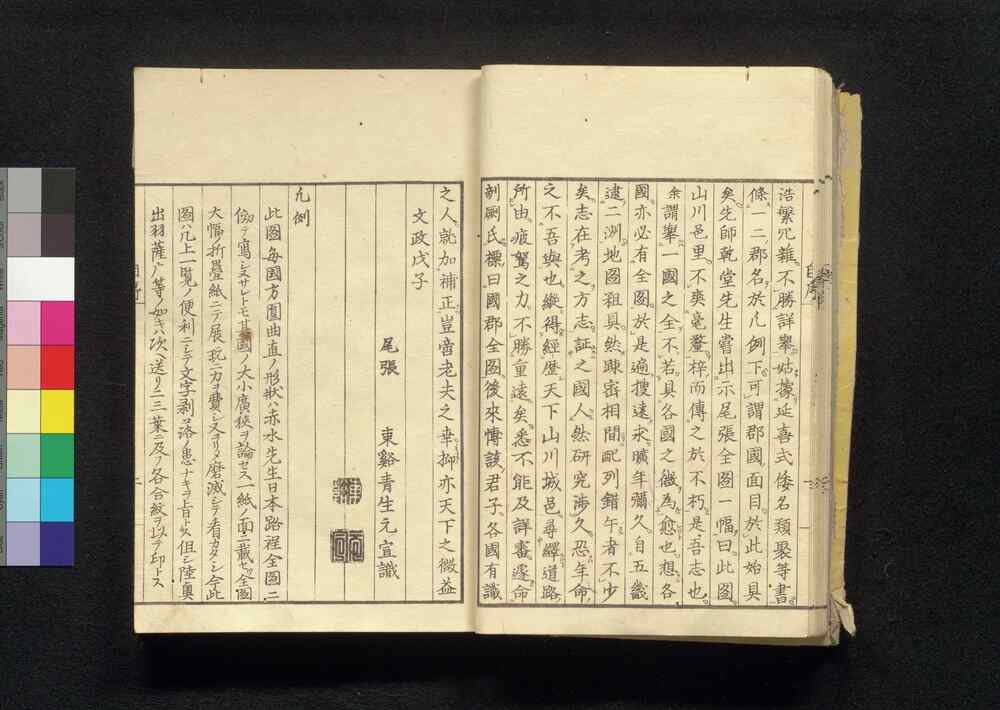 浩繁冗雜不勝詳舉姑據延喜式倭名類聚等書
條一二郡名於凡例下可謂郡國面目於此始具
矣先師乾堂先生嘗出示尾張全圖一幅曰此圖
山川邑里不爽毫釐梓而傳之於不朽是吾志也
余謂舉一國之全不若具各國之微為愈也想各
國亦必有全圖於是遍搜遠求曠年彌久自五畿
逮二洲地圖粗具然踈密相間毗列錯午者不少
矣志在考之方志証之國人然研究渉久恐年命
之不吾與也縱得經歴天下山川城邑尋繹道路
所由疲駑之力不勝重遠矣悉不能及詳審遂命
剞劂氏標曰國郡全圖後來博該君子各國有識
之人就加補正豈啻老夫之幸抑亦天下之微益
文政戊子
尾張 東谿青生元宣識
凡例
此圖每國方圓曲直ノ形狀ハ赤水先生日本路程全圖ニ
倣テ寫シ文サレトモ其國ノ大小廣狹ヲ論セス一紙ノ面ニ載セ全圖
大幅ノ折疊紙ニテ展玩ニカヲ費シ又ヲリメ磨滅シテ看カタシ今此
圖ハ几上一覧ノ便利ニシテ文字剥落ノ患ナキヲ旨トス但シ陸奥
出羽薩广等ノ如キハ次ヘ送リ二三葉ニ及フ各合紋ヲ以テ印トス